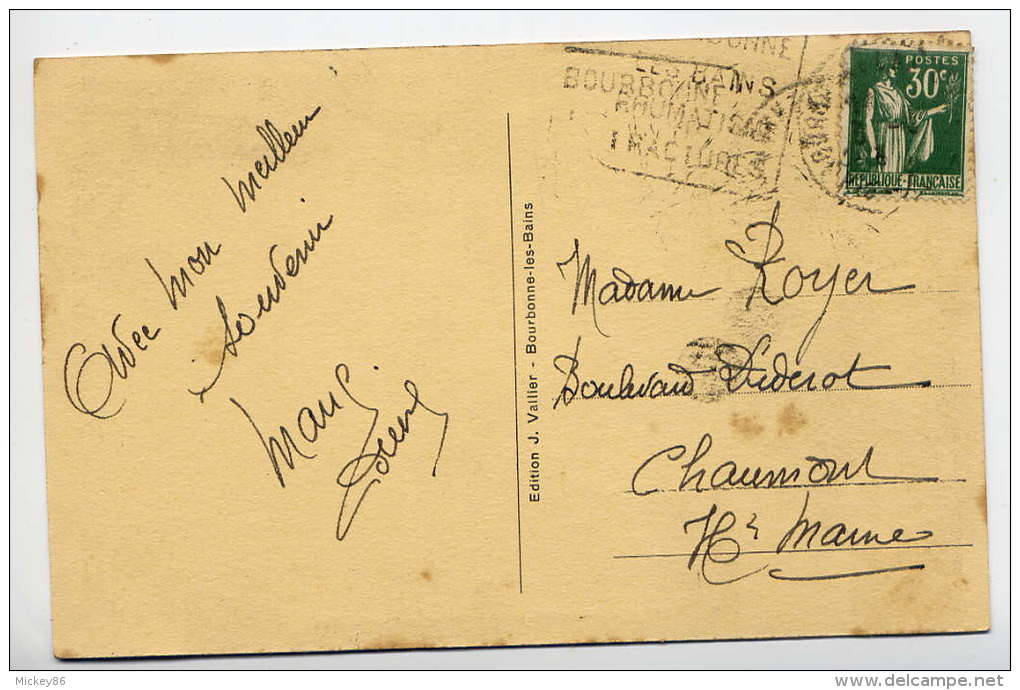 Avec mon meilleur
souvenir
LES BAINS
BOURBONNE
RHUMATISME
FRACTURES
POSTES
30c
REPUBLIQUE-FRANÇAISE
Edition J. Vallier - Bourbonne-les-Bains
Madame Royer
Boulevard Diderot
Chaumont
Hte Marne
Mickey86
delcampe.net